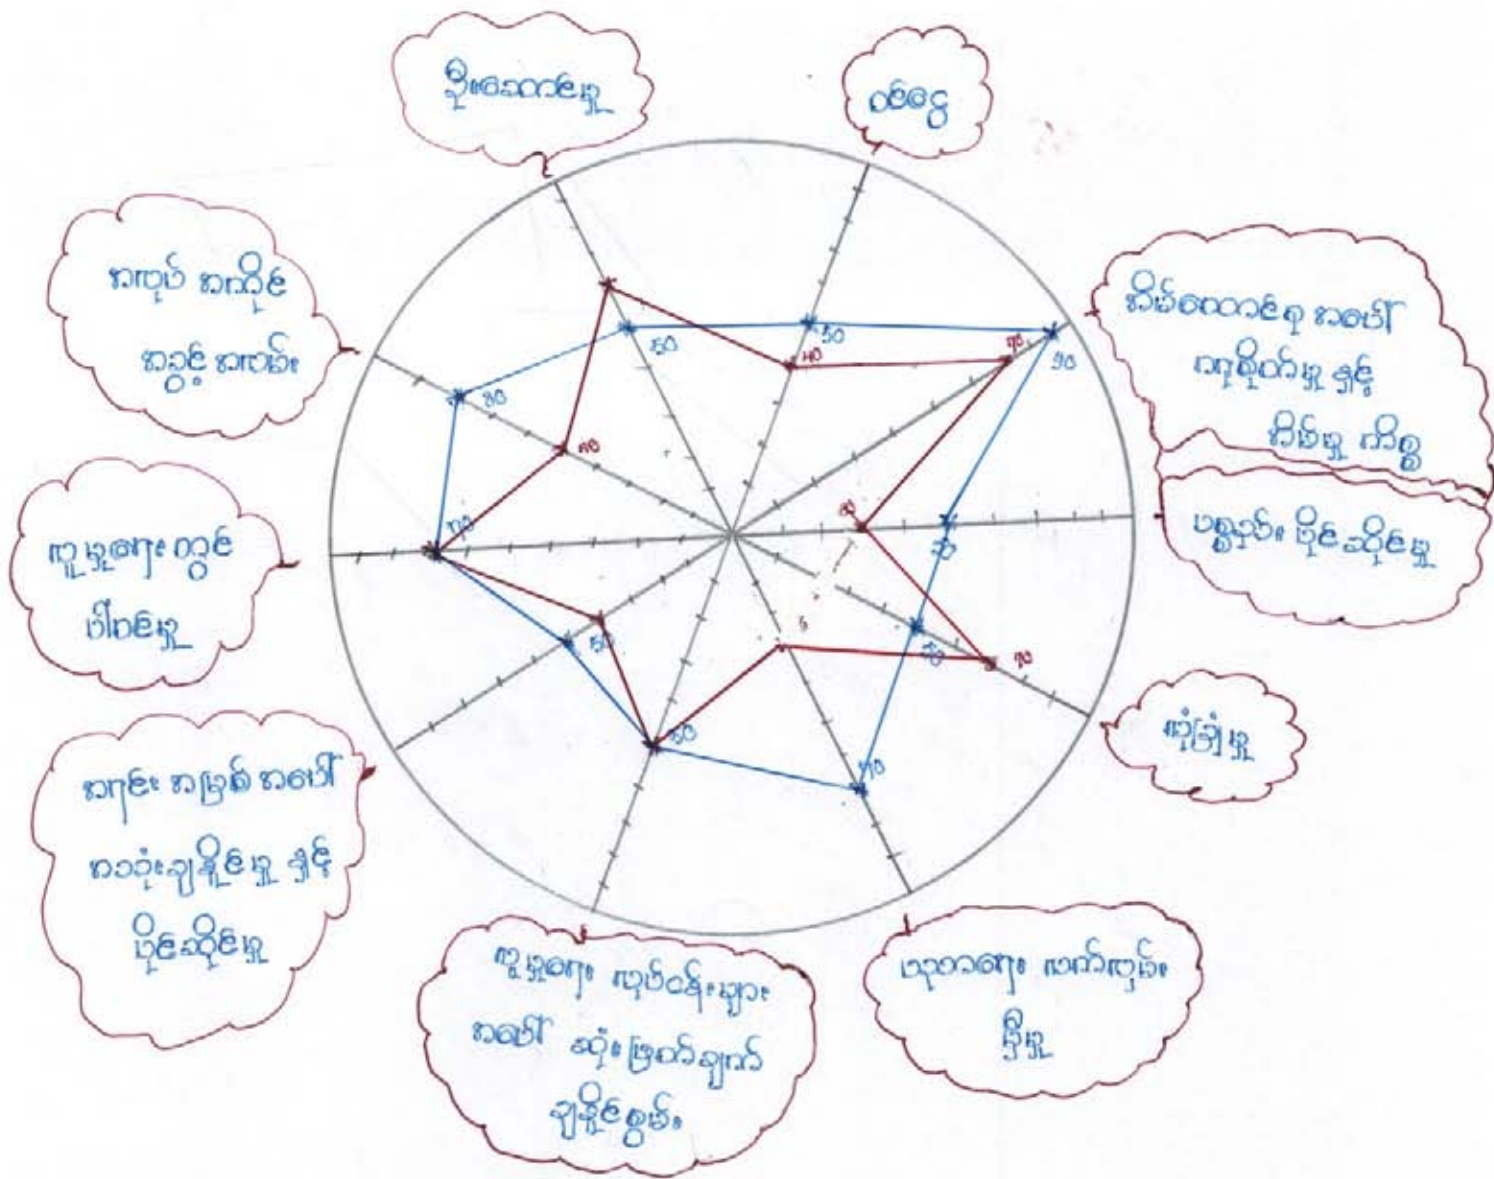 ဦးဆောင်မှု
ဝင်ငွေ
အိမ်ထောင်ရှု အပေါ်
ဂရုစိုက်မှု နှင့်
အိမ်မှု ကိစ္စ
ပစ္စည်း ပိုင်ဆိုင်မှု
လုံခြုံမှု
ပညာရေး လက်လှမ်း
မှီမှု
လူမှုရေး လုပ်ငန်းများ
အပေါ် ဆုံးဖြတ်ချက်
ချနိုင်စွမ်း
အရင်း အမြစ် အပေါ်
အသုံးချနိုင်မှု နှင့်
ပိုင်ဆိုင်မှု
လူမှုရေး တွင်
ပါဝင်မှု
အလုပ် အကိုင်
အခွင့် အလမ်း
50
50
40
70
90
80
40
70
50
50
70
70